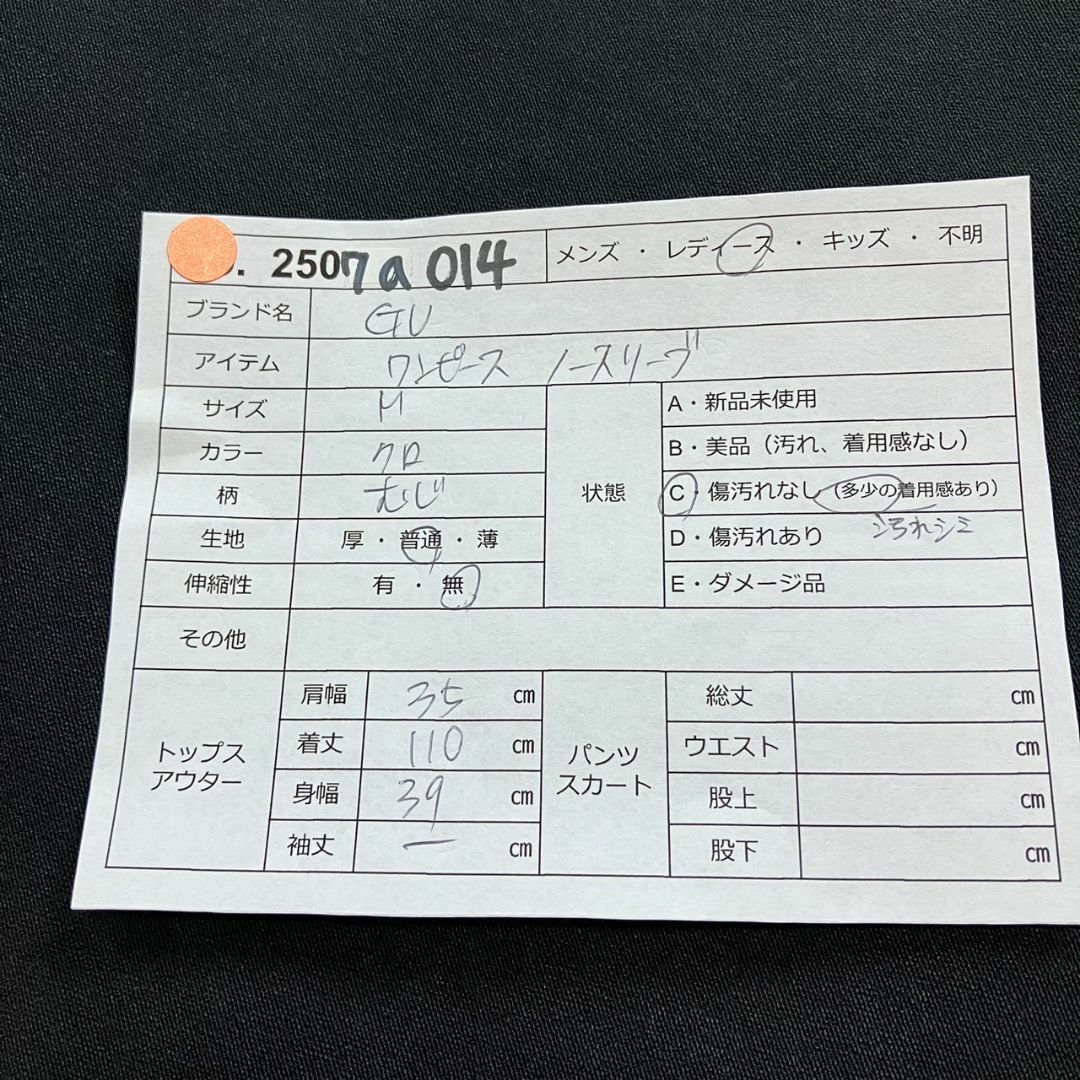 . 2507a014 メンズ ・ レディース ・ キッズ ・ 不明
ブランド名 GU
アイテム ワンピース ノースリーブ
サイズ M
カラー クロ
柄 むじ
生地 厚 ・ 普通 ・ 薄
伸縮性 有 ・ 無
状態
A・新品未使用
B・美品（汚れ、着用感なし）
C・傷汚れなし（多少の着用感あり）
D・傷汚れあり 汚れシミ
E・ダメージ品
その他
トップス
アウター
肩幅 35 cm
着丈 110 cm
身幅 39 cm
袖丈 ー cm
パンツ
スカート
総丈 cm
ウエスト cm
股上 cm
股下 cm